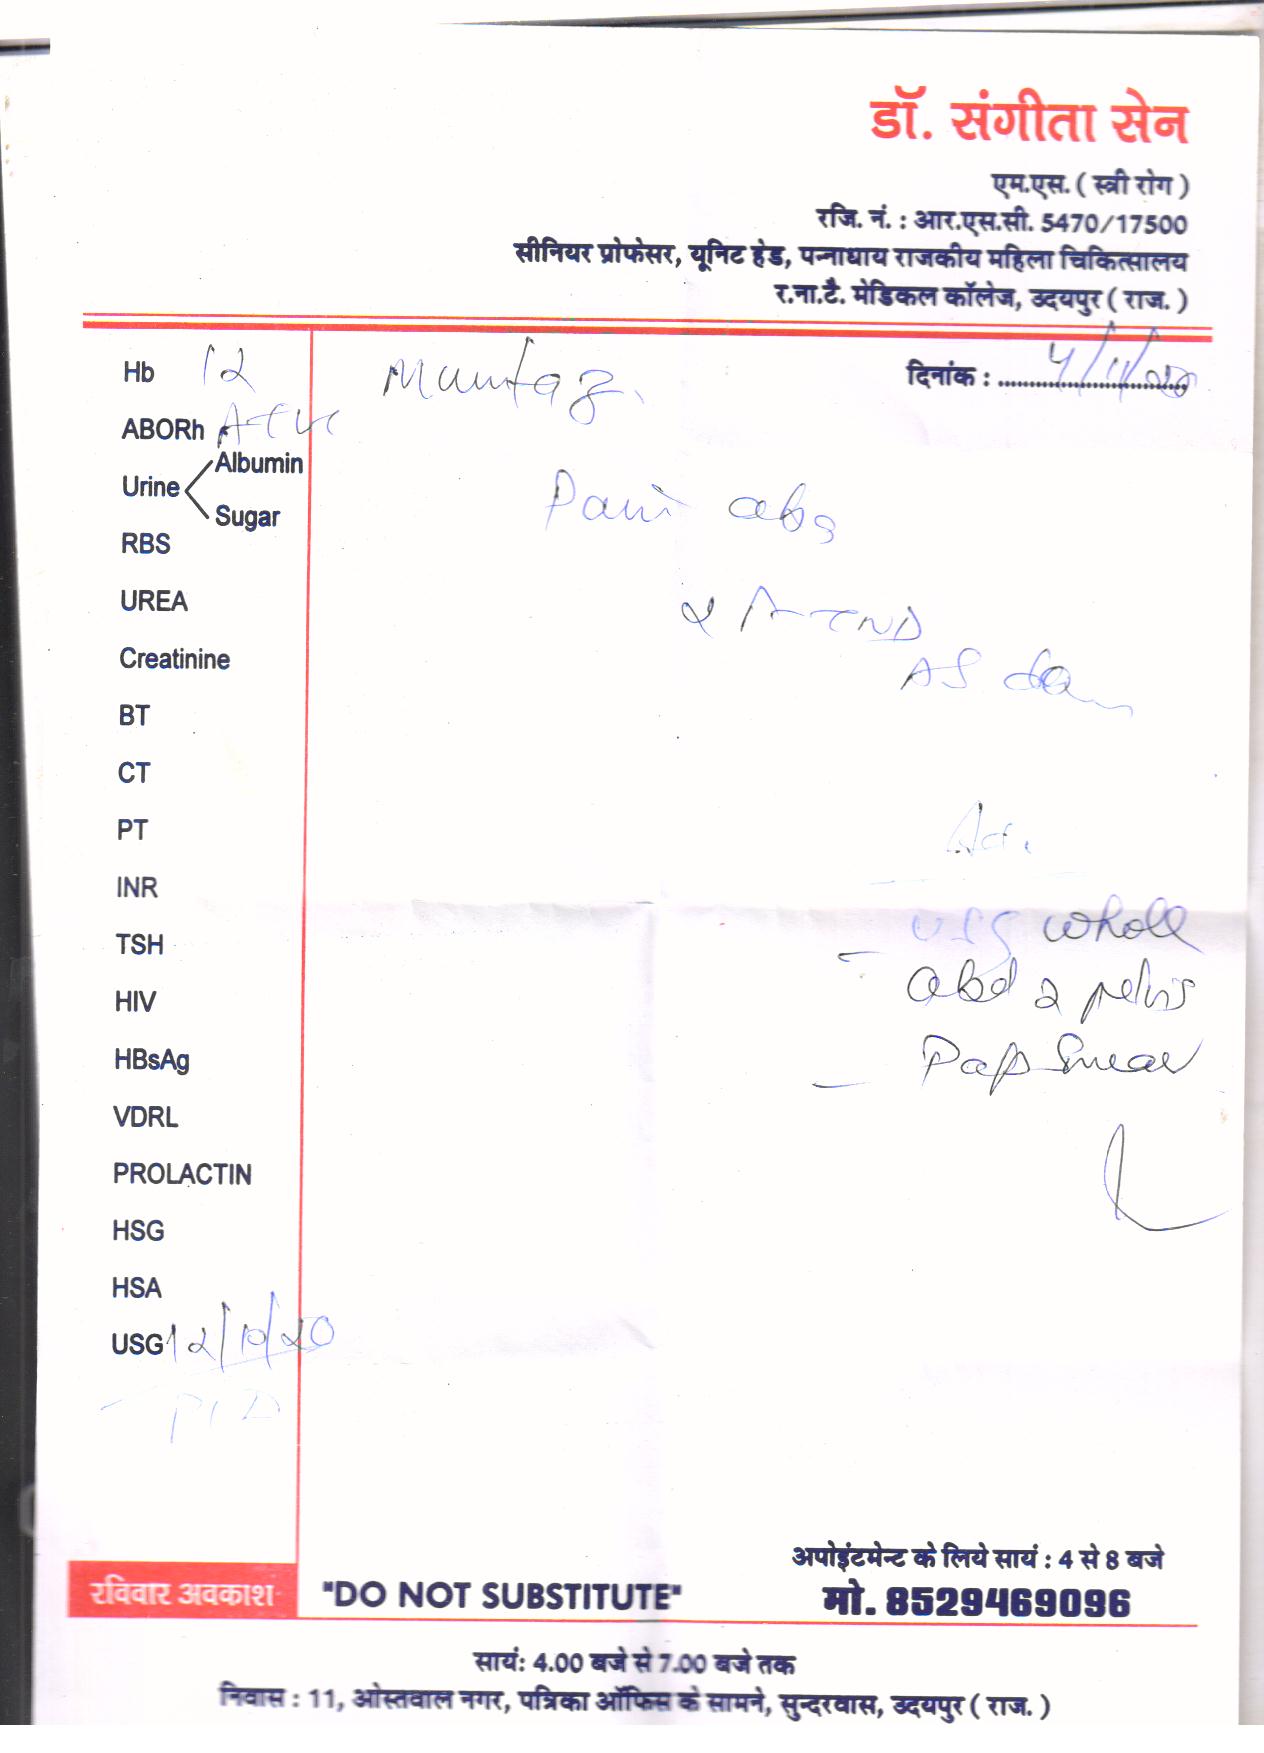 डॉ. संगीता सेन
एम.एस. ( स्त्री रोग )
रजि. नं. : आर.एस.सी. 5470/17500
सीनियर प्रोफेसर, यूनिट हेड, पन्नाधाय राजकीय महिला चिकित्सालय
र.ना.टै. मेडिकल कॉलेज, उदयपुर ( राज. )
दिनांक : 4/11/20
Mumtaz.
Hb 12
ABORh A+ve
Urine Albumin
Sugar
RBS
UREA
Creatinine
BT
CT
PT
INR
TSH
HIV
HBsAg
VDRL
PROLACTIN
HSG
HSA
USG 12/10/20
- PID
Pain abs
AS
- USG whole
abd & pelvis
- Pap Smear
रविवार अवकाश
"DO NOT SUBSTITUTE"
अपोइंटमेन्ट के लिये सायं : 4 से 8 बजे
मो. 8529469096
सायं: 4.00 बजे से 7.00 बजे तक
निवास : 11, ओस्तवाल नगर, पत्रिका ऑफिस के सामने, सुन्दरवास, उदयपुर ( राज. )